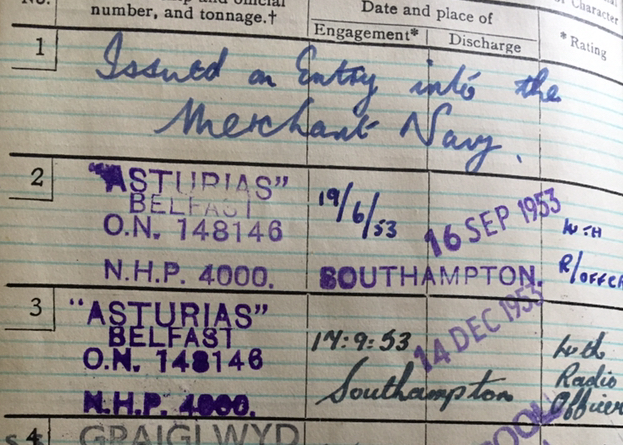 No.
and official
number, and tonnage.†
Date and place of
Engagement*
Discharge
of Character
*Rating
1
Issued on Entry into the
Merchant Navy.
2
"ASTURIAS"
BELFAST
O.N. 148146
N.H.P. 4000.
19/6/53
16 SEP 1953
SOUTHAMPTON.
R/OFFCR
3
"ASTURIAS"
BELFAST
O.N. 148146
N.H.P. 4000.
17:9:53
Southampton
14 DEC 1953
Radio
Officer
4
GRAIGLWYD